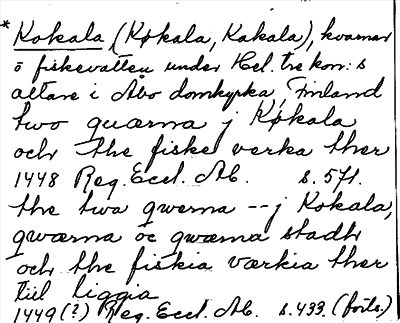 * Kokala (Køkala, Kakala), kvarnar
o fiskevatten under Hel. tre kon:s
altare i Åbo domkyrka, Finland
two quærna j Køkala
och the fiske verka ther
1448 Reg. Eccl. Ab. s. 571.
the twa qwerna -- j Kokala,
qwærna oc qwærna stadh
och the fiskia værkia ther
tiil liggia
1449 (?) Reg. Eccl. Ab. s. 433. (forts.)